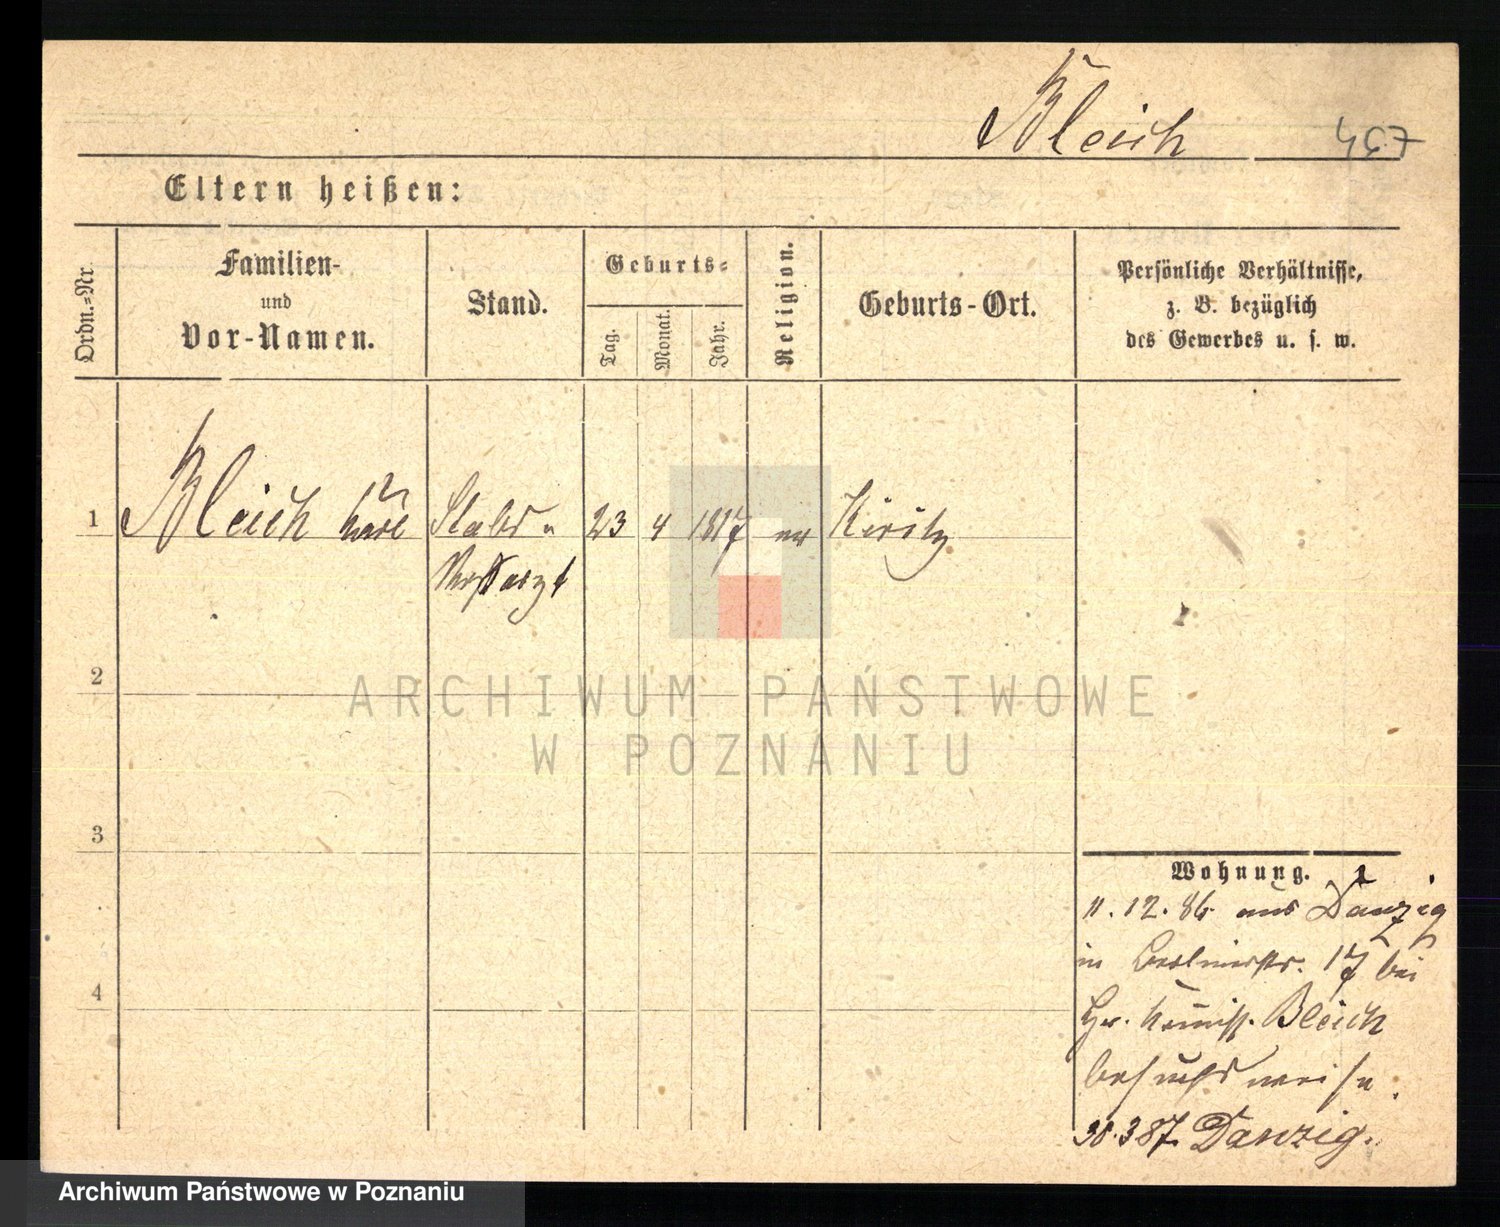 Bleich 457
Eltern heißen:
Ordn.=Nr.
Familien-
und
Vor-Namen.
Stand.
Geburts=
Tag.
Monat.
Jahr.
Religion.
Geburts-Ort.
Persönliche Verhältnisse,
z. B. bezüglich
des Gewerbes u. s. w.
1 Bleich Karl Stabs 23 4 1817 ev Kiritz
arzt
2
ARCHIWUM PAŃSTWOWE
W POZNANIU
3
Wohnung.
11.12.86. aus Danzig
in Berlinerstr. 17 bei
4
Hr. Bleich
besuchsweise.
30.3 87. Danzig.
Archiwum Państwowe w Poznaniu